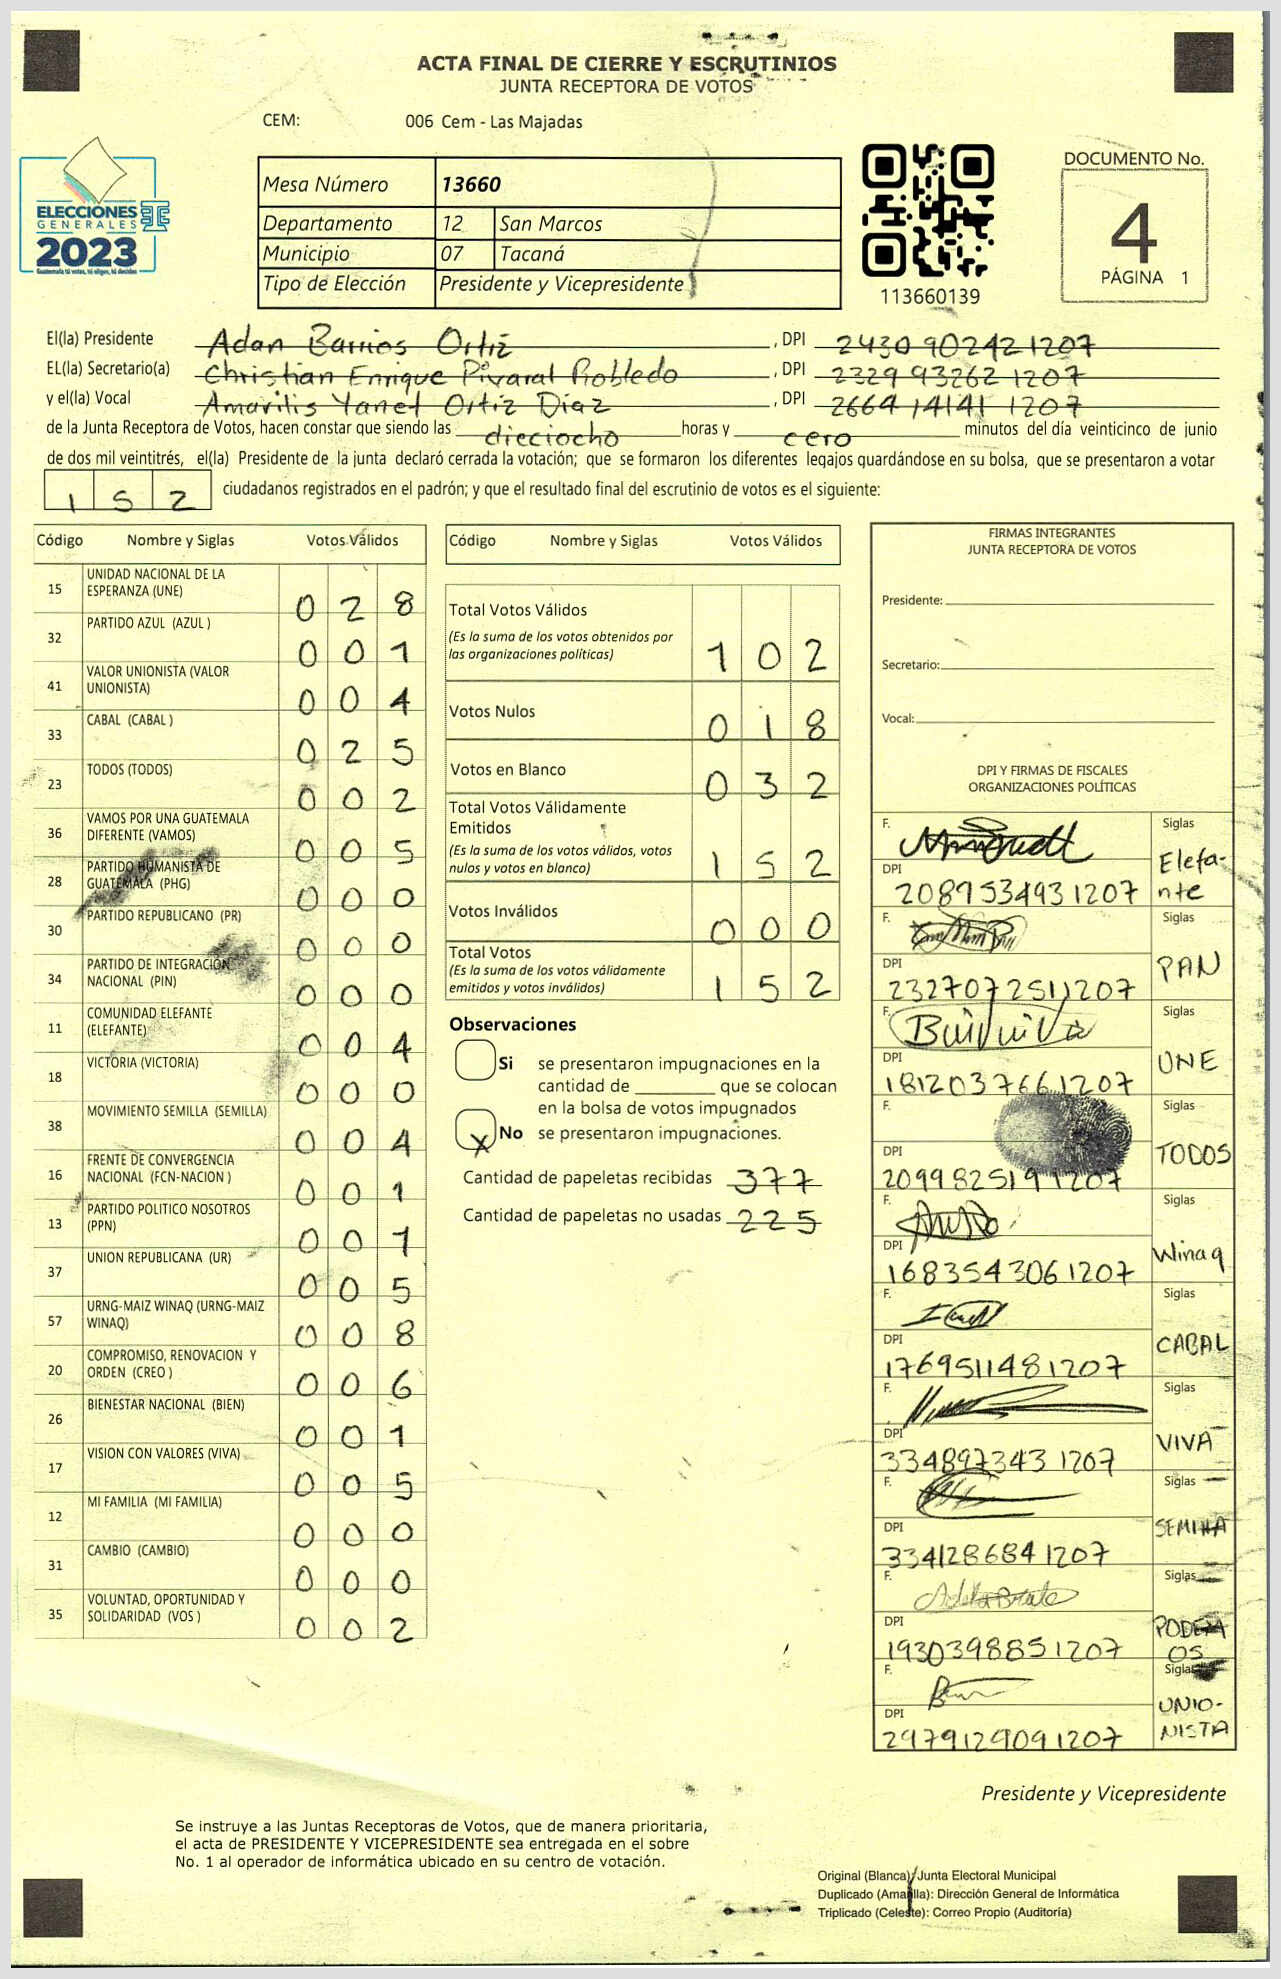 ACTA FINAL DE CIERRE Y ESCRUTINIOS
JUNTA RECEPTORA DE VOTOS
CEM: 006 Cem - Las Majadas
ELECCIONES
GENERALES
2023
Guatemala tú votas, tú eliges, tú decides
Mesa Número 13660
Departamento 12 San Marcos
Municipio 07 Tacaná
Tipo de Elección Presidente y Vicepresidente
113660139
DOCUMENTO No.
4
PÁGINA 1
El(la) Presidente Adan Barrios Ortiz, DPI 2430 90242 1207
EL(la) Secretario(a) Christian Enrique Pivaral Robledo, DPI 2329 93262 1207
y el(la) Vocal Amarilis Yanet Ortiz Diaz, DPI 2664 14141 1207
de la Junta Receptora de Votos, hacen constar que siendo las dieciocho horas y cero minutos del día veinticinco de junio
de dos mil veintitrés, el(la) Presidente de la junta declaró cerrada la votación; que se formaron los diferentes legajos guardándose en su bolsa, que se presentaron a votar
152 ciudadanos registrados en el padrón; y que el resultado final del escrutinio de votos es el siguiente:
Código Nombre y Siglas Votos Válidos
15 UNIDAD NACIONAL DE LA
ESPERANZA (UNE) 028
32 PARTIDO AZUL (AZUL ) 001
41 VALOR UNIONISTA (VALOR
UNIONISTA) 004
33 CABAL (CABAL ) 025
23 TODOS (TODOS) 002
36 VAMOS POR UNA GUATEMALA
DIFERENTE (VAMOS) 005
28 PARTIDO HUMANISTA DE
GUATEMALA (PHG) 000
30 PARTIDO REPUBLICANO (PR) 000
34 PARTIDO DE INTEGRACIÓN
NACIONAL (PIN) 000
11 COMUNIDAD ELEFANTE
(ELEFANTE) 004
18 VICTORIA (VICTORIA) 000
38 MOVIMIENTO SEMILLA (SEMILLA) 004
16 FRENTE DE CONVERGENCIA
NACIONAL (FCN-NACION ) 001
13 PARTIDO POLITICO NOSOTROS
(PPN) 001
37 UNION REPUBLICANA (UR) 005
57 URNG-MAIZ WINAQ (URNG-MAIZ
WINAQ) 008
20 COMPROMISO, RENOVACION Y
ORDEN (CREO ) 006
26 BIENESTAR NACIONAL (BIEN) 001
17 VISION CON VALORES (VIVA) 005
12 MI FAMILIA (MI FAMILIA) 000
31 CAMBIO (CAMBIO) 000
35 VOLUNTAD, OPORTUNIDAD Y
SOLIDARIDAD (VOS ) 002
Código Nombre y Siglas Votos Válidos
Total Votos Válidos
(Es la suma de los votos obtenidos por
las organizaciones políticas) 102
Votos Nulos 018
Votos en Blanco 032
Total Votos Válidamente
Emitidos
(Es la suma de los votos válidos, votos
nulos y votos en blanco) 152
Votos Inválidos 000
Total Votos
(Es la suma de los votos válidamente
emitidos y votos inválidos) 152
Observaciones
Si se presentaron impugnaciones en la
cantidad de ________ que se colocan
en la bolsa de votos impugnados
X No se presentaron impugnaciones.
Cantidad de papeletas recibidas 377
Cantidad de papeletas no usadas 225
FIRMAS INTEGRANTES
JUNTA RECEPTORA DE VOTOS
Presidente:
Secretario:
Vocal:
DPI Y FIRMAS DE FISCALES
ORGANIZACIONES POLÍTICAS
F. Siglas Elefa-
nte
DPI 2089534931207
F. Siglas PAN
DPI 2327072511207
F. Siglas UNE
DPI 1812037661207
F. Siglas TODOS
DPI 2099825191207
F. Siglas Winaq
DPI 1683543061207
F. Siglas CABAL
DPI 1769511481207
F. Siglas VIVA
DPI 334897343 1207
F. Siglas SEMILLA
DPI 3341286841207
F. Siglas PODEM
OS
DPI 1930398851207
F. Siglas UNIO-
NISTA
DPI 2979129091207
Presidente y Vicepresidente
Se instruye a las Juntas Receptoras de Votos, que de manera prioritaria,
el acta de PRESIDENTE Y VICEPRESIDENTE sea entregada en el sobre
No. 1 al operador de informática ubicado en su centro de votación.
Original (Blanca): Junta Electoral Municipal
Duplicado (Amarilla): Dirección General de Informática
Triplicado (Celeste): Correo Propio (Auditoría)